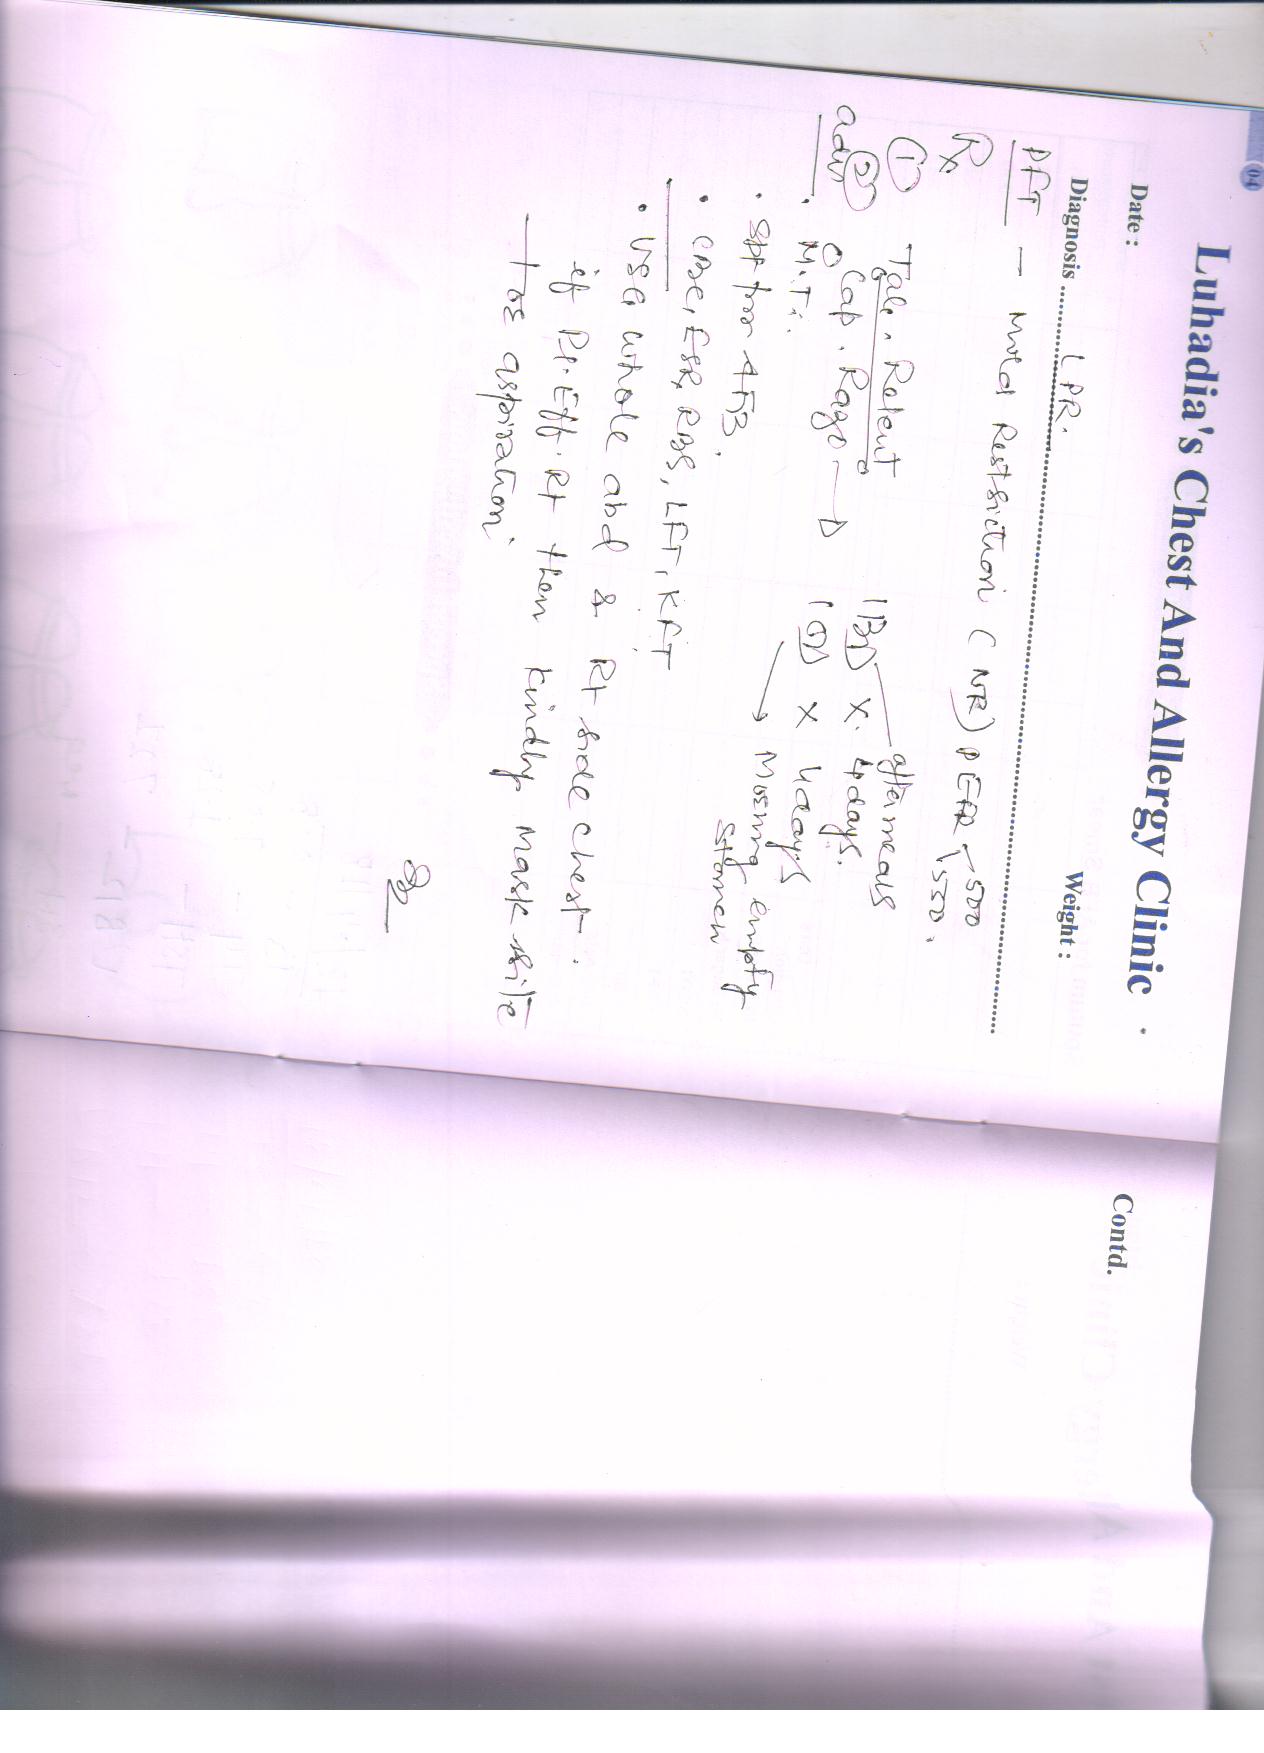 04
Luhadia's Chest And Allergy Clinic
Date : Weight :
Diagnosis LPR.
PFT — Mild Restriction (NR) PEFR 500
550.
Rx
① Tab. Relent 1 BD x 4 days. after meals
② Cap. Rago-D 1 OD x 4 days
Morning empty
adv • M.T.
• for AFB.
• CBC, ESR, RBS, LFT, KFT
• USG whole abd & Rt side chest.
if Pl. Eff. Rt then kindly mark site
for aspiration.
Contd.